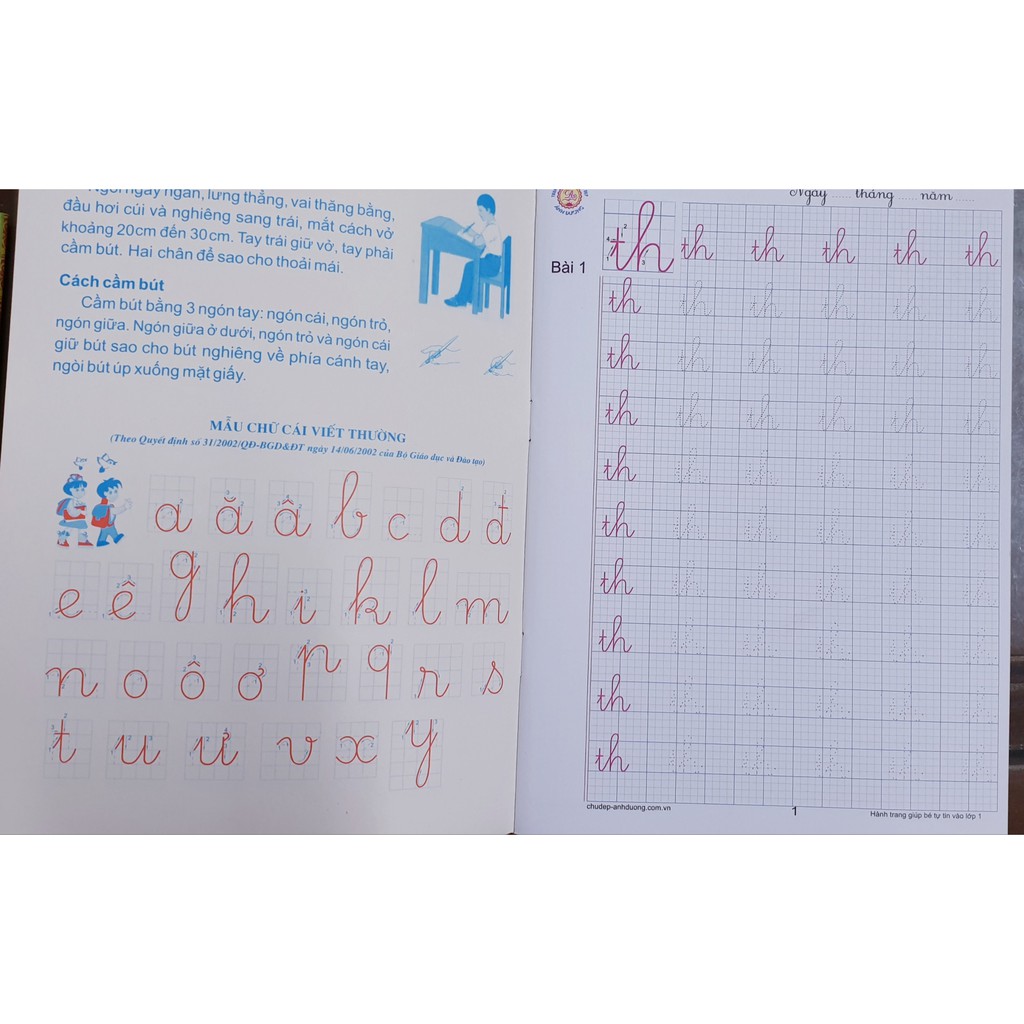 Ngồi ngay ngắn, lưng thẳng, vai thăng bằng,
đầu hơi cúi và nghiêng sang trái, mắt cách vở
khoảng 20cm đến 30cm. Tay trái giữ vở, tay phải
cầm bút. Hai chân để sao cho thoải mái.
Cách cầm bút
Cầm bút bằng 3 ngón tay: ngón cái, ngón trỏ,
ngón giữa. Ngón giữa ở dưới, ngón trỏ và ngón cái
giữ bút sao cho bút nghiêng về phía cánh tay,
ngòi bút úp xuống mặt giấy.
MẪU CHỮ CÁI VIẾT THƯỜNG
(Theo Quyết định số 31/2002/QĐ-BGD&ĐT ngày 14/06/2002 của Bộ Giáo dục và Đào tạo)
a ă â b c d đ
e ê g h i k l m
n o ô ơ p q r s
t u ư v x y
Ngày ...... tháng ...... năm ......
Bài 1
th th th th th th
th th th th th th
th th th th th th
th th th th th th
th th th th th th
th th th th th th
th th th th th th
th th th th th th
th th th th th th
th th th th th th
chudep-anhduong.com.vn
1
Hành trang giúp bé tự tin vào lớp 1